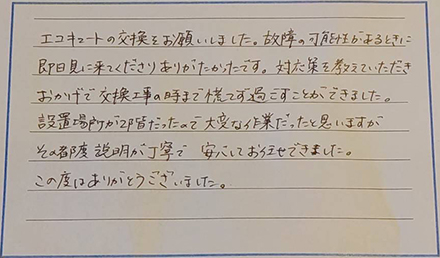 エコキュートの交換をお願いしました。故障の可能性があるときに
即日見に来てくださりありがたかったです。対応策を教えていただき
おかげで交換工事の時まで慌てず過ごすことができました。
設置場所が2階だったので大変な作業だったと思いますが
その都度説明が丁寧で 安心してお任せできました。
この度はありがとうございました。